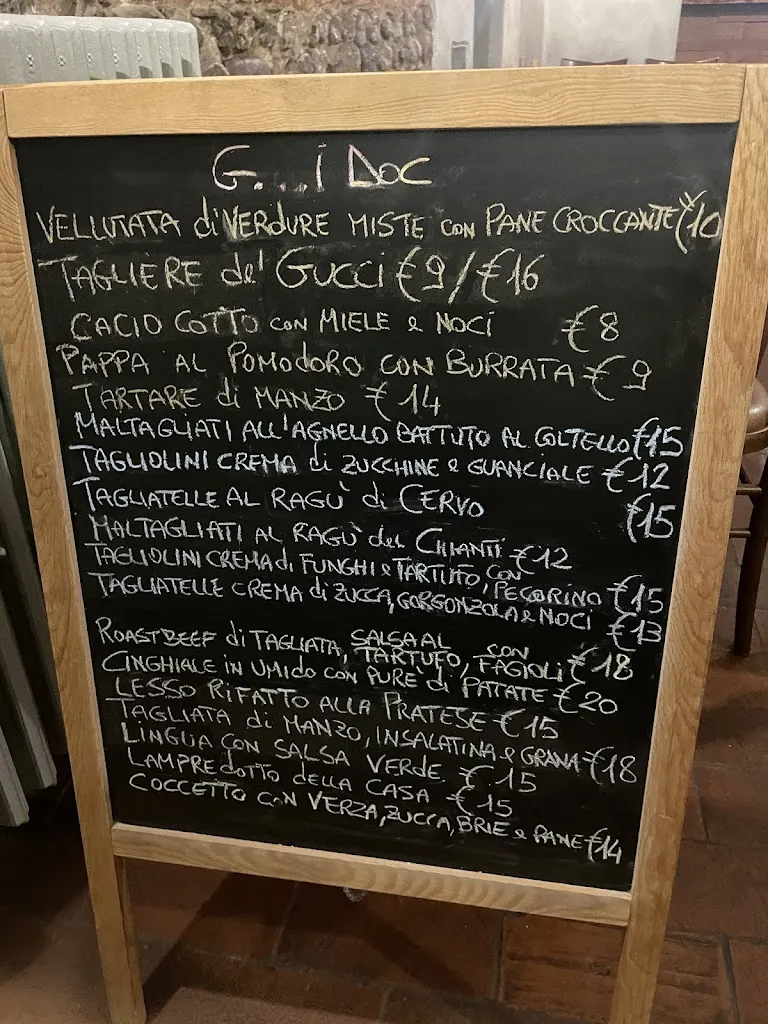 G...i Doc
VELLUTATA di VERDURE MISTE CON PANE CROCCANTE €10
TAGLIERE de' GUCCI €9/€16
CACIO COTTO con MIELE e NOCI €8
PAPPA AL POMODORO CON BURRATA €9
TARTARE di MANZO €14
MALTAGLIATI ALL'AGNELLO BATTUTO AL COLTELLO €15
TAGLIOLINI CREMA di ZUCCHINE e GUANCIALE €12
TAGLIATELLE AL RAGÙ di CERVO €15
MALTAGLIATI AL RAGÙ del CHIANTI €12
TAGLIOLINI CREMA di FUNGHI e TARTUFO, CON PECORINO €15
TAGLIATELLE CREMA di ZUCCA, GORGONZOLA e NOCI €13
ROASTBEEF di TAGLIATA, SALSA AL TARTUFO, CON FAGIOLI €18
CINGHIALE IN UMIDO CON PURÈ di PATATE €20
LESSO RIFATTO ALLA PRATESE €15
TAGLIATA di MANZO, INSALATINA e GRANA €18
LINGUA CON SALSA VERDE €15
LAMPREDOTTO DELLA CASA €15
COCCETTO CON VERZA, ZUCCA, BRIE e PANE €14